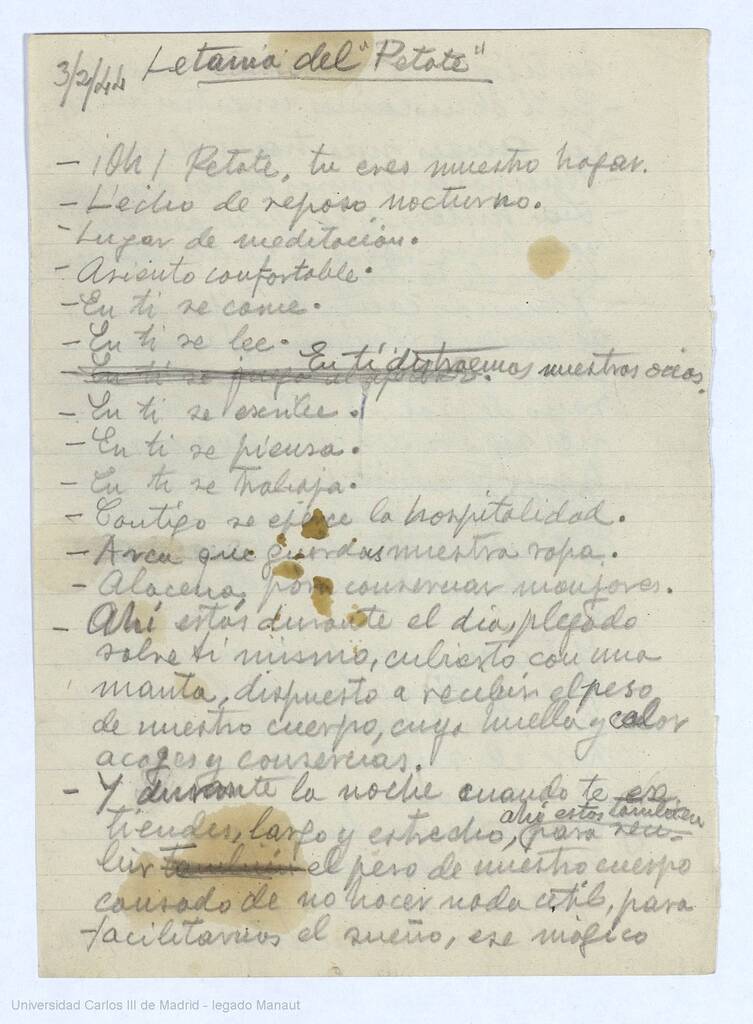 3/2/44 Letanía del "Petate"
- ¡Oh! Petate, tu eres nuestro hogar.
- Lecho de reposo nocturno.
- Lugar de meditación.
- Asiento confortable.
- En ti se come.
- En ti se lee.
En ti distraemos nuestros ocios.
- En ti se escribe.
- En ti se piensa.
- En ti se trabaja.
- Contigo se ejerce la hospitalidad.
- Arca que guardas nuestra ropa.
- Alacena, para conservar manjares.
- Ahí estás durante el día, plegado
sobre ti mismo, cubierto con una
manta, dispuesto a recibir el peso
de nuestro cuerpo, cuya huella y calor
acoges y conservas.
- Y durante la noche cuando te ex
ahí estás también
tiendes, largo y estrecho, para reci-
bir también el peso de nuestro cuerpo
cansado de no hacer nada útil, para
facilitarnos el sueño, ese mágico
Universidad Carlos III de Madrid - legado Manaut